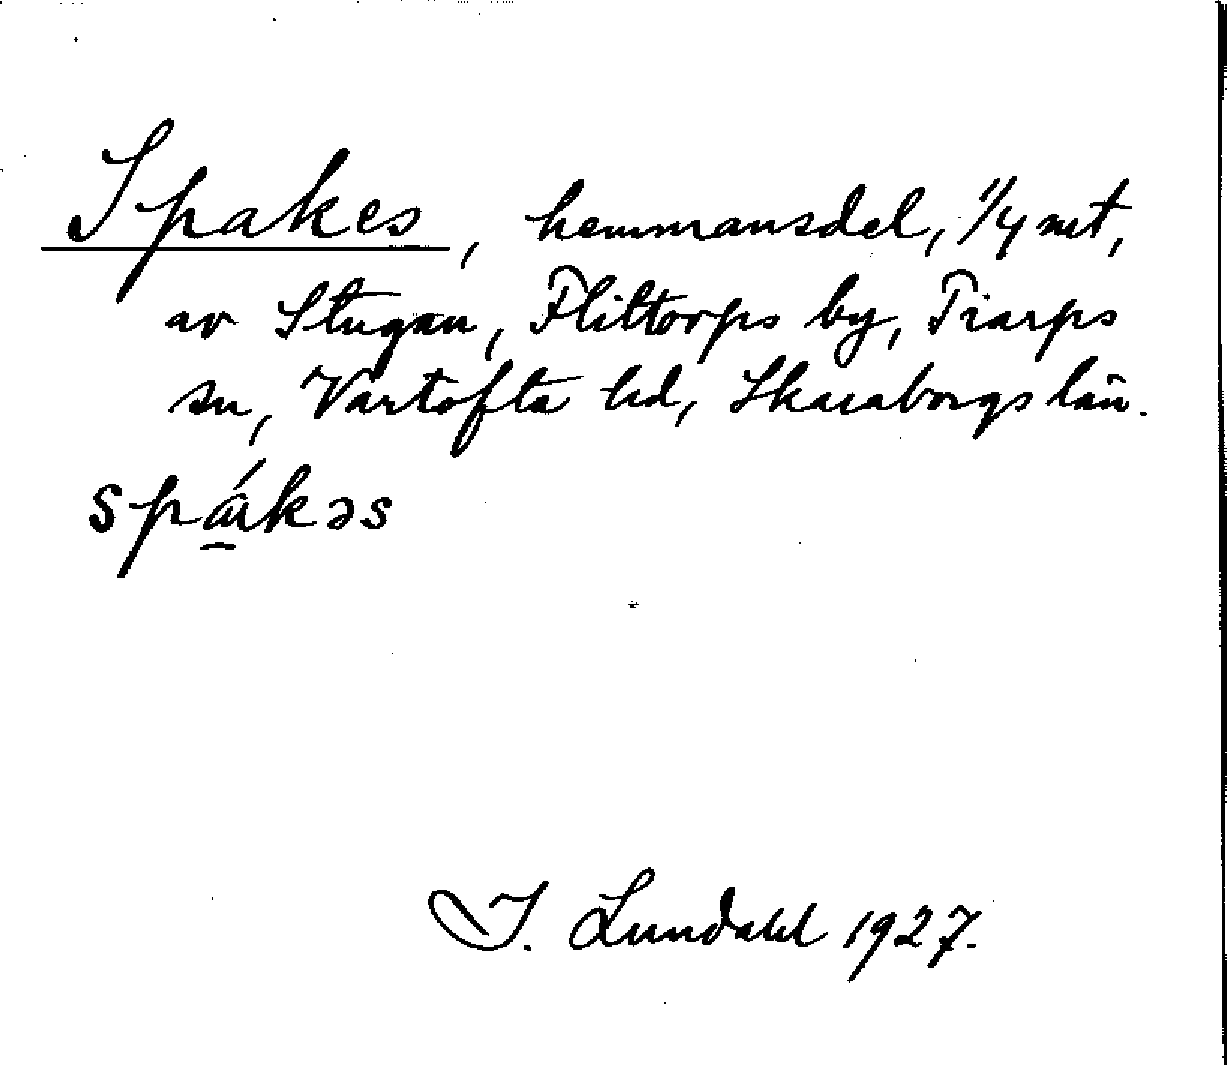 Spakes, hemmansdel, 1/4 mt,
av Stugan, Flittorps by, Tiarps
sn, Vartofta hd, Skaraborgs län.
spá̱kəs
I. Lundahl 1927.